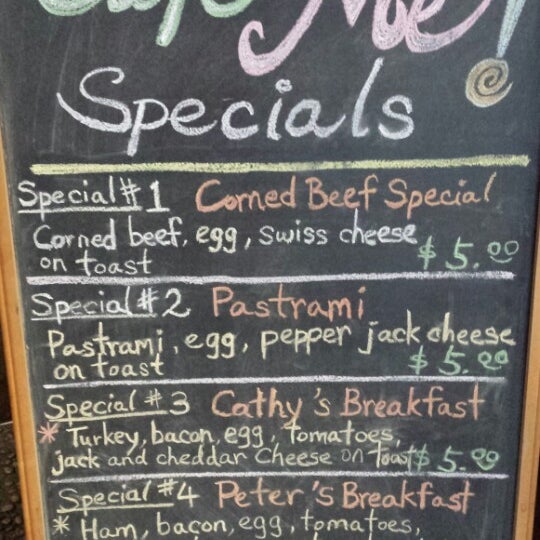 Cafe Moe!
Specials
Special #1 Corned Beef Special
Corned beef, egg, swiss cheese
on toast $5.00
Special #2 Pastrami
Pastrami, egg, pepper jack cheese
on toast $5.00
Special #3 Cathy's Breakfast
* Turkey, bacon, egg, tomatoes,
jack and cheddar Cheese on Toast $5.00
Special #4 Peter's Breakfast
* Ham, bacon, egg, tomatoes,